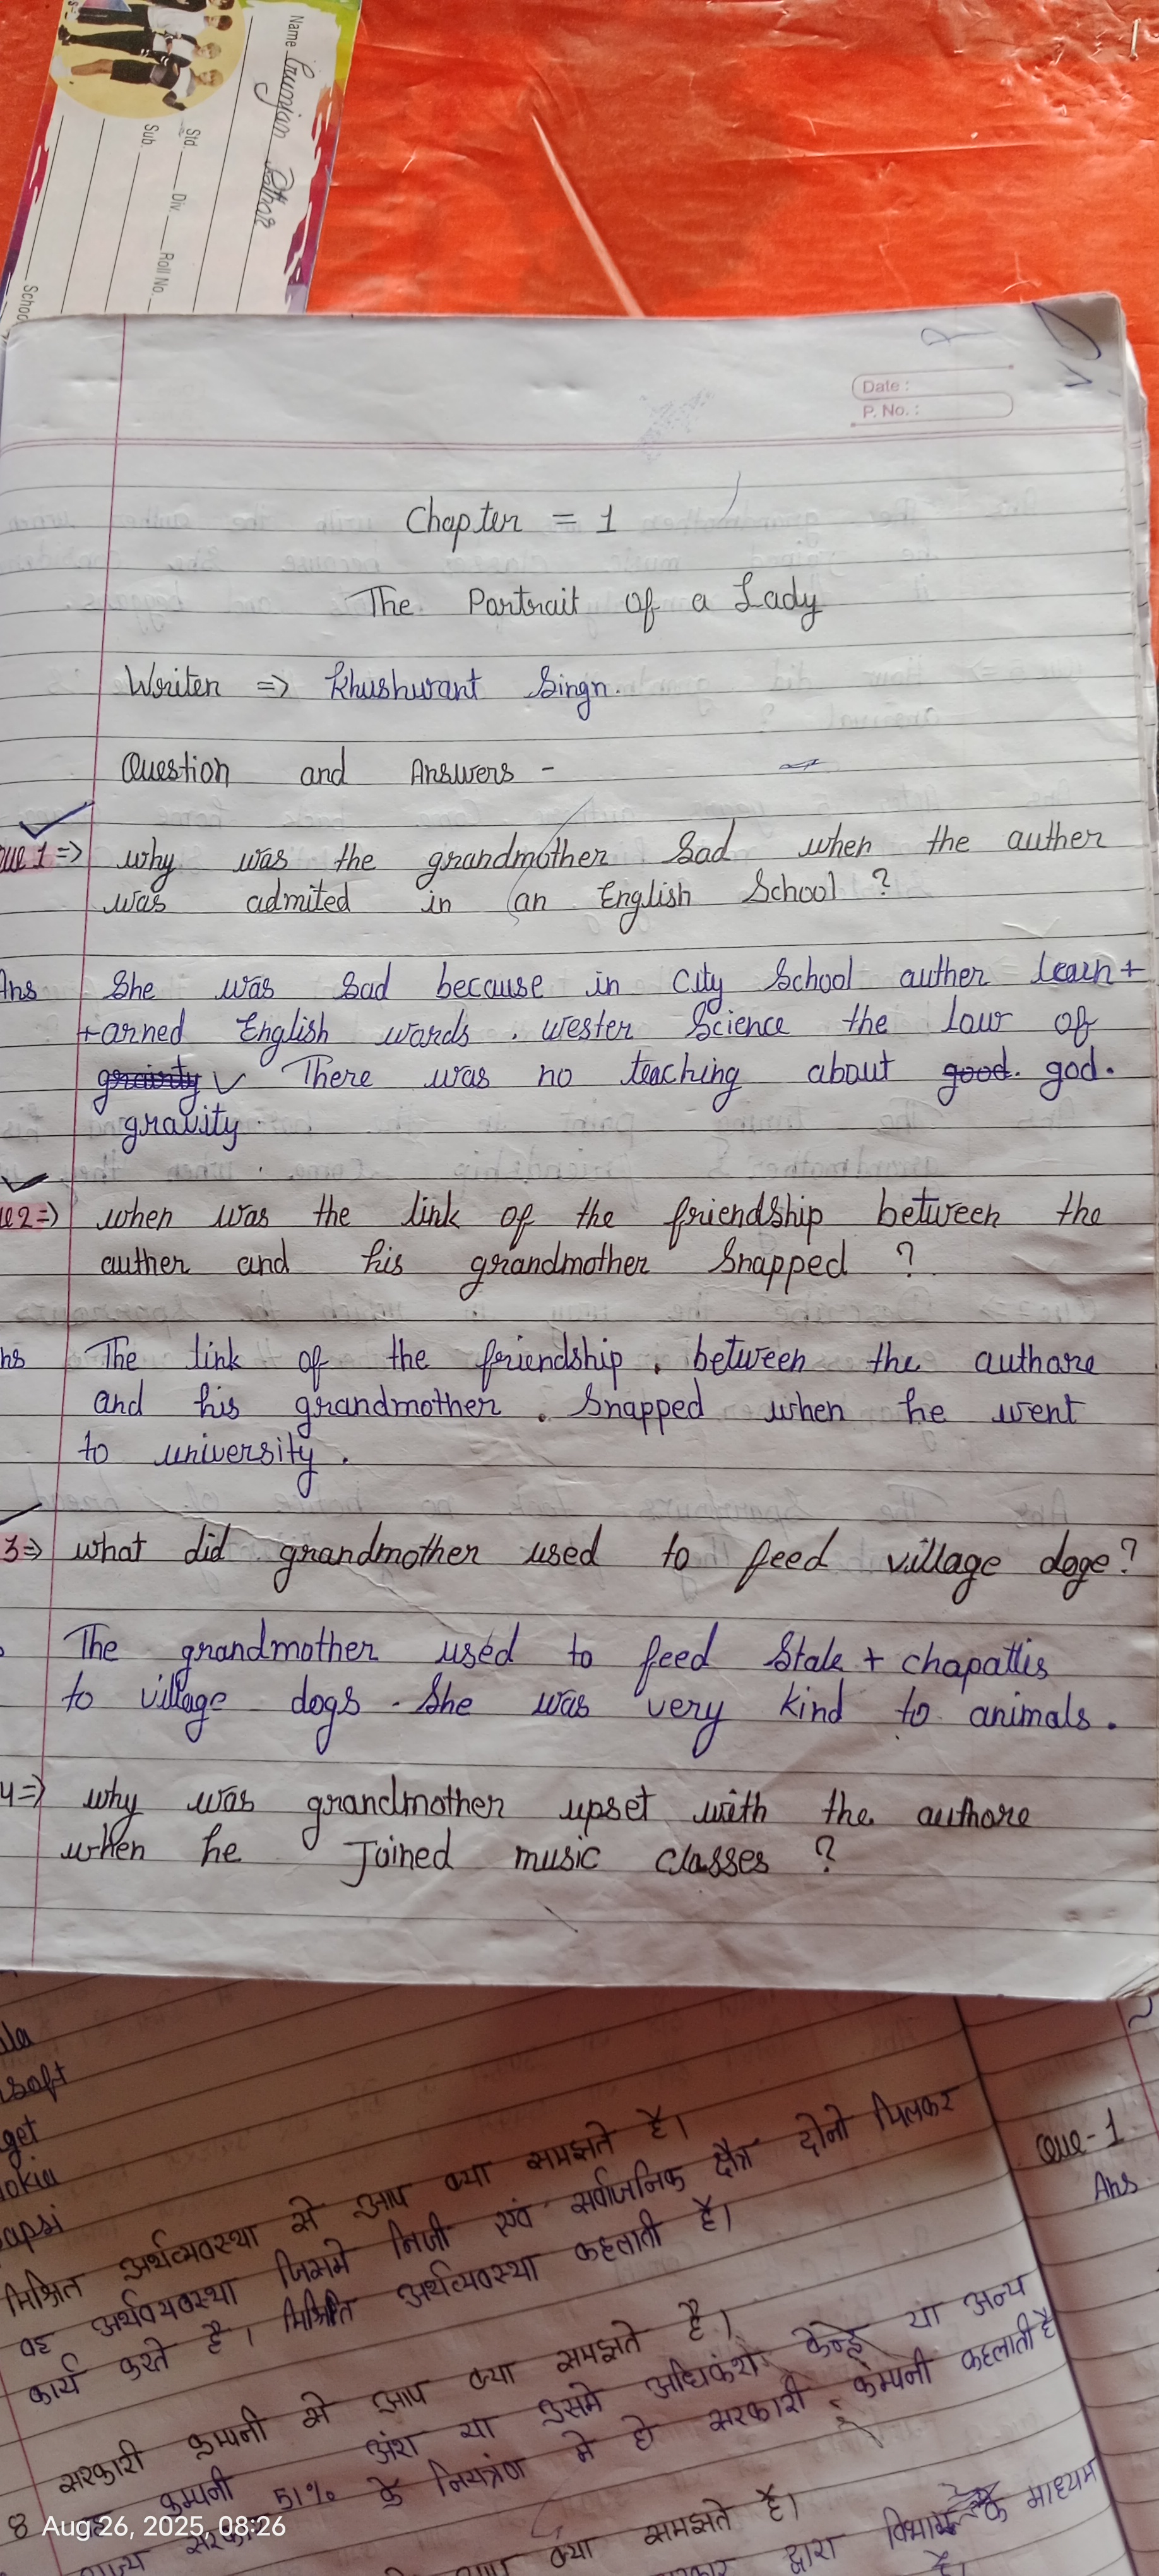 Name
Std. Div. Roll No.
Sub.
School
Date :
P. No. :
Chapter = 1
The Portrait of a Lady
Writer => Khushwant Singn.
Question and Answers -
Que 1 => why was the grandmother sad when the auther
was admited in an English School ?
Ans She was sad because in City School auther learn+
+arned English words . wester Science the law of
There was no teaching about good. god.
gravity.
e 2 => when was the link of the friendship between the
auther and his grandmother Snapped ?
ns The link of the friendship . between the authore
and his grandmother . Snapped when he went
to university .
3 => what did grandmother used to feed village doge?
The grandmother used to feed Stale + chapattis
to village dogs - She was very kind to animals .
4 => why was grandmother upset with the authore
when he Joined music classes ?
soft
get
okia
apsi
मिश्रित अर्थव्यवस्था से आप क्या समझते है।
वह अर्थवयवस्था जिसमे निजी एवं सर्वाजनिक क्षैत्र दोनो मिलकर
कार्य करते है। मिश्रित अर्थव्यवस्था कहलाती है।
सरकारी कम्पनी से आप क्या समझते है।
कम्पनी अंश या उसमे अधिकंश या अन्य
राज्य सरकार 51% के नियत्रंण मे हो सरकारी कंम्पनी कहलाती है
क्या समझते है।
द्वारा के माध्यम
है।
Que-1
Ans
8 Aug 26, 2025, 08:26